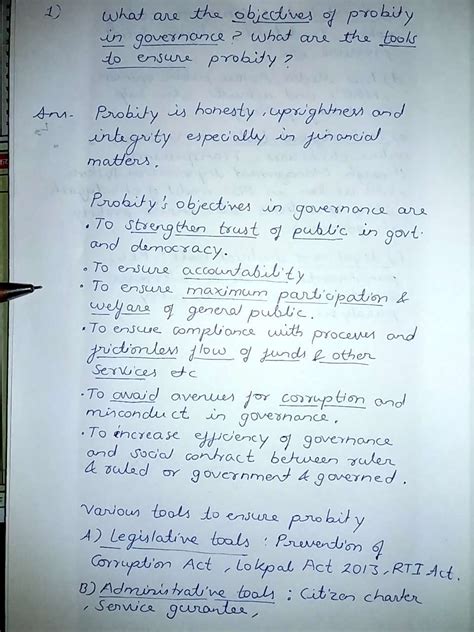 1) What are the objectives of probity
in governance? What are the tools
to ensure probity?
Ans- Probity is honesty, uprightness and
integrity especially in financial
matters.
Probity's objectives in governance are
• To strengthen trust of public in govt.
and democracy.
• To ensure accountability
• To ensure maximum participation &
welfare of general public.
• To ensure compliance with processes and
frictionless flow of funds & other
services etc
• To avoid avenues for corruption and
misconduct in governance.
• To increase efficiency of governance
and social contract between ruler
& ruled or government & governed.
Various tools to ensure probity
A) Legislative tools : Prevention of
Corruption Act, Lokpal Act 2013, RTI Act.
B) Administrative tools : Citizen charter
, Service gurantee,